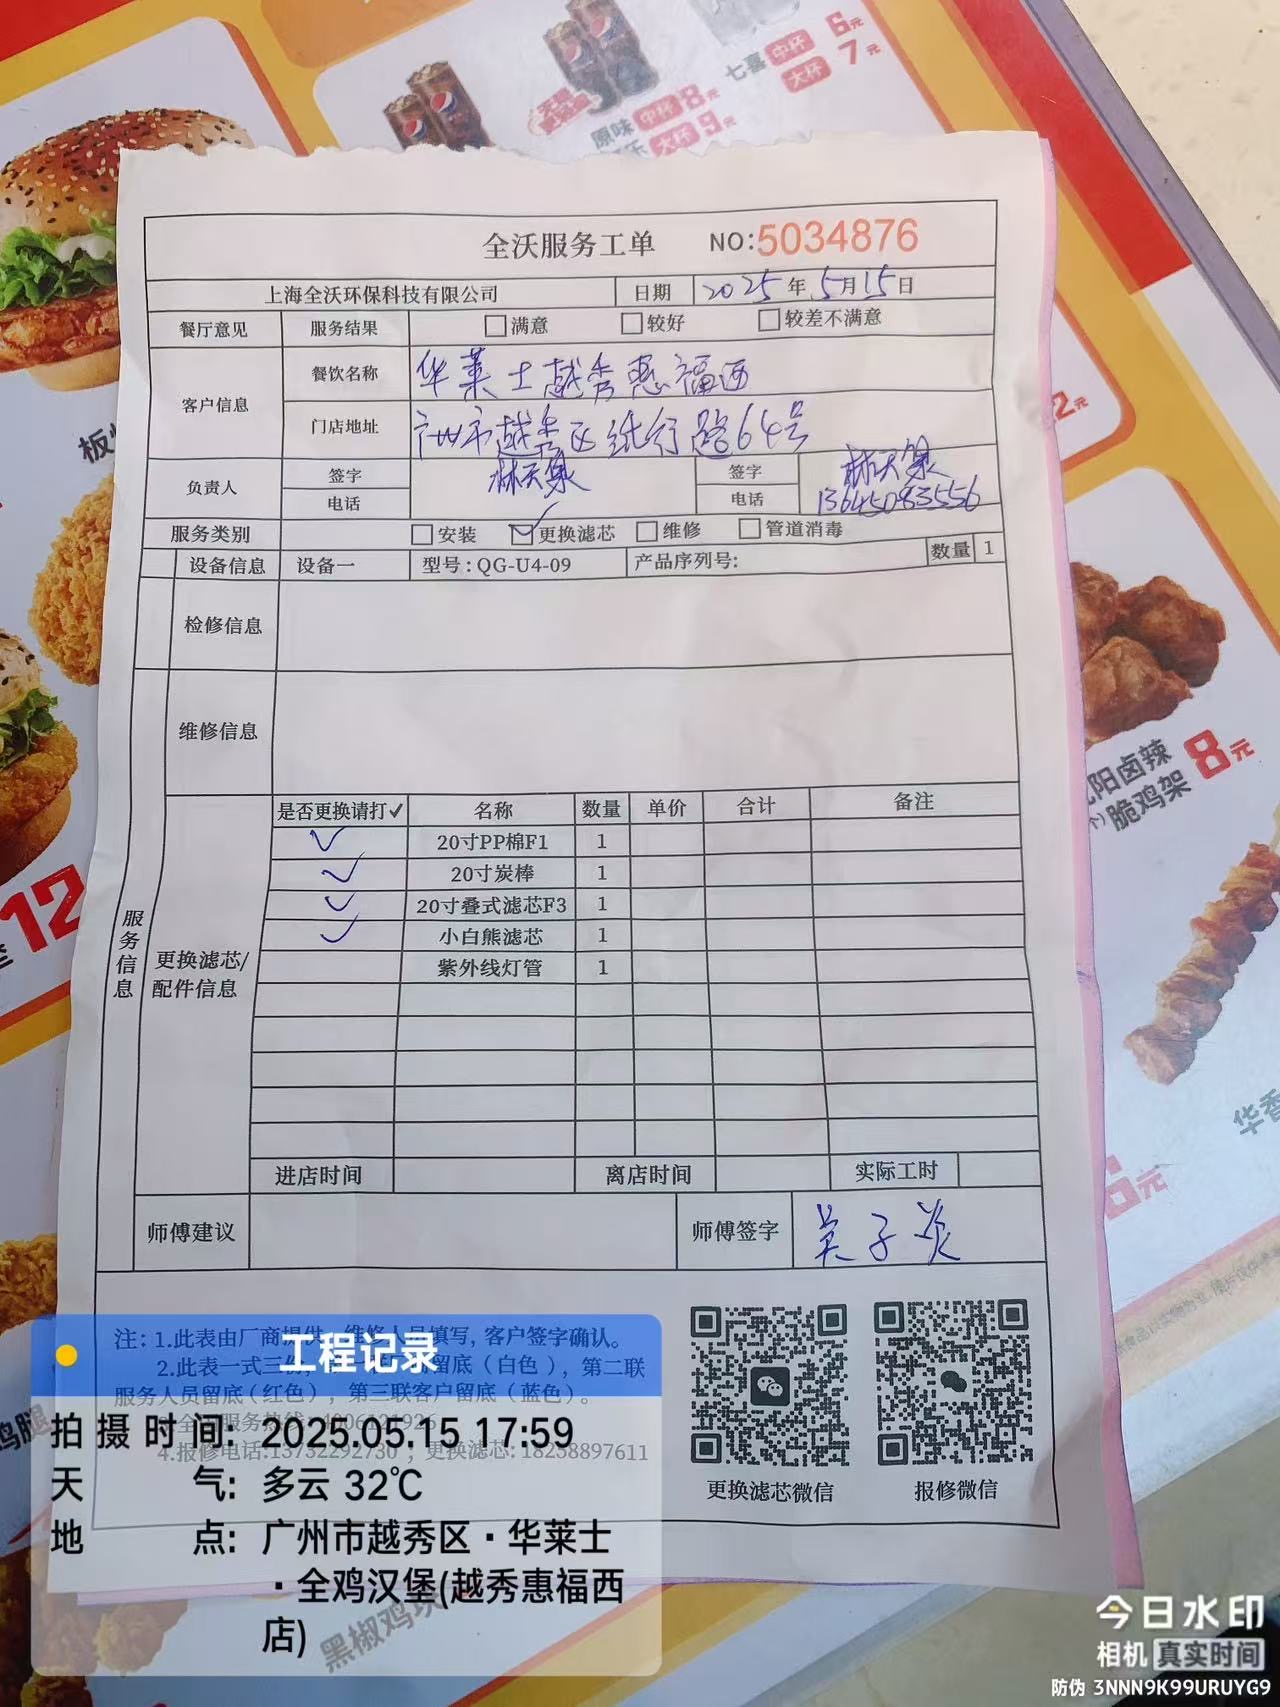 七喜 中杯 6元
大杯 7元
原味 中杯 8元
大杯 9元
全沃服务工单 NO:5034876
上海全沃环保科技有限公司 日期 2025年5月15日
餐厅意见 服务结果 满意 较好 较差不满意
客户信息 餐饮名称 华莱士越秀惠福西
门店地址 广州市越秀区纸行路64号
负责人 签字 林天泉 签字 林天泉
电话 电话 13645083556
服务类别 安装 更换滤芯 维修 管道消毒
设备信息 设备一 型号:QG-U4-09 产品序列号: 数量 1
检修信息
维修信息
服务信息
更换滤芯/
配件信息
是否更换请打✓ 名称 数量 单价 合计 备注
✓ 20寸PP棉F1 1
✓ 20寸炭棒 1
✓ 20寸叠式滤芯F3 1
✓ 小白熊滤芯 1
紫外线灯管 1
进店时间 离店时间 实际工时
师傅建议 师傅签字 吴子炎
注: 1.此表由厂商提供,维修人员填写, 客户签字确认。
2.此表一式三份, 留底(白色), 第二联
服务人员留底(红色), 第三联客户留底(蓝色)。
4.报修电话:13732292730 ; 更换滤芯: 18258897611
更换滤芯微信 报修微信
卤辣
脆鸡架 8元
12
6元
黑椒鸡块
工程记录
拍摄时间: 2025.05.15 17:59
天气: 多云 32℃
地点: 广州市越秀区·华莱士
·全鸡汉堡(越秀惠福西
店)
今日水印
相机 真实时间
防伪 3NNN9K99URUYG9